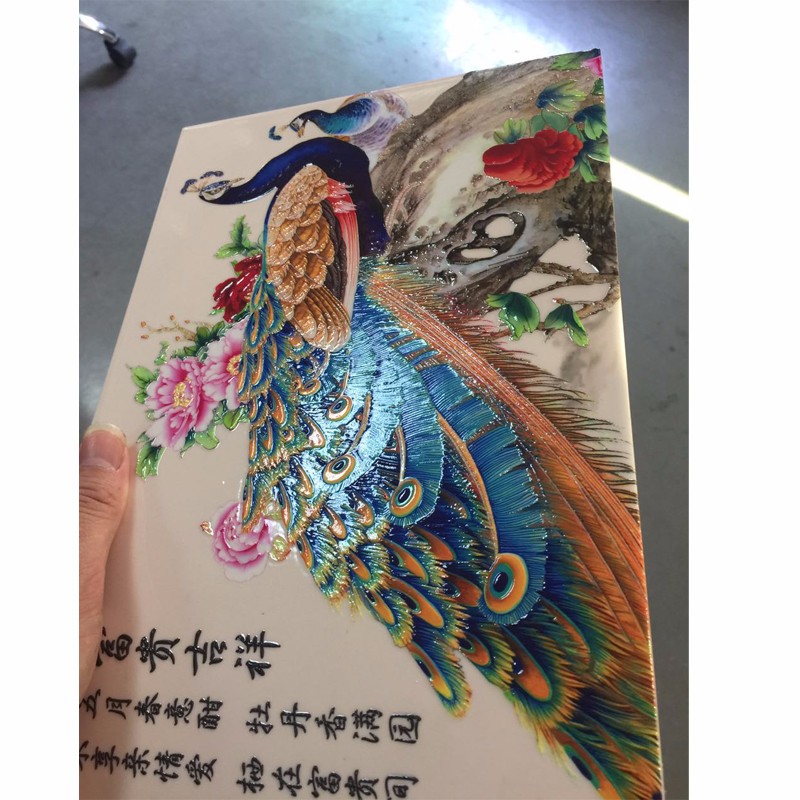 富贵吉祥
五月春意酣 牡丹香满园
享亲情爱 栖在富贵间